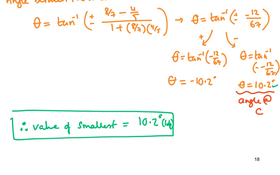 θ = tan⁻¹ (± (8/7 - 4/5) / (1 + (8/7)(4/5))) → θ = tan⁻¹ (± -12/67)
+ -
θ = tan⁻¹ (-12/67) θ = tan⁻¹ (- -12/67)
θ = -10.2° θ = 10.2°
angle @
C
∴ value of smallest = 10.2°
18